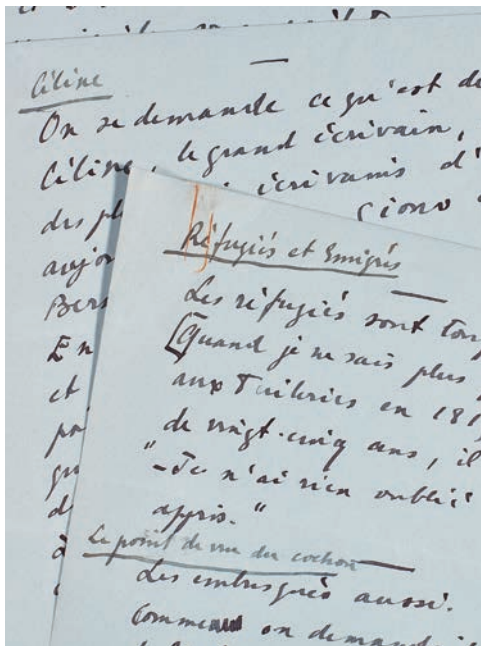 Céline
On se demande ce qu'est de
Céline, le grand écrivain,
des pl écrivains d'
Giono
aujor
Bers
En
et
po
qu
d
à
Réfugiés et Émigrés
Les réfugiés sont touj
[Quand je ne sais plus
aux Tuileries en 181
de vingt-cinq ans, il
"-Je n'ai rien oublié
appris."
Le point de vue du cochon
Les embusqués aussi.
Comme on demand